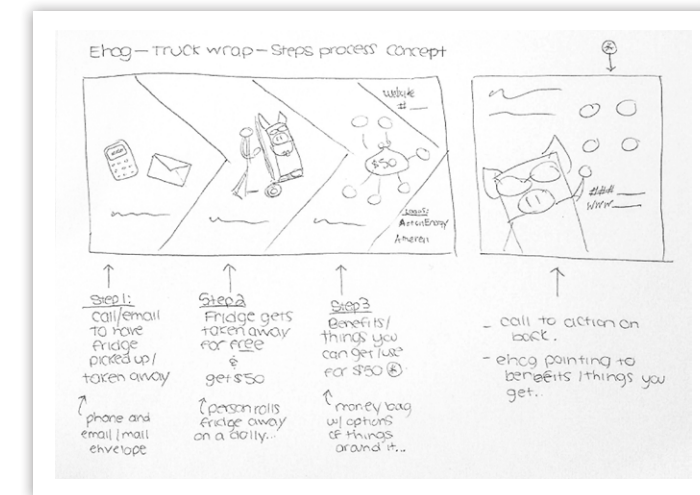 Ehog – Truck wrap – Steps process concept
website
# __
$50
Logos:
Action Energy
Ameren
###
www.
Step 1:
call/email
to have
fridge
picked up/
taken away
phone and
email/mail
envelope
Step 2
Fridge gets
taken away
for free
&
get $50
person rolls
fridge away
on a dolly...
Step 3
Benefits/
things you
can get/use
for $50 *
money bag
w/ options
of things
around it...
- call to action on
back.
- ehog pointing to
benefits/things you
get..